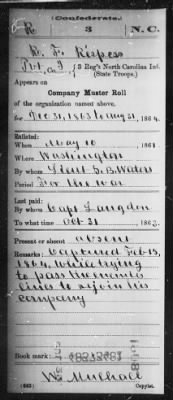 (Confederate.)
R 3 N.C.
R. F. Respess
Pvt, Co. I, 3 Reg't North Carolina Inf.
(State Troops.)
Appears on
Company Muster Roll
of the organization named above,
for Dec 31, 1863 to Aug 31, 1864.
Enlisted:
When May 10, 1861.
Where Washington
By whom Lieut S. B. Waters
Period For the war
Last paid:
By whom Capt Langdon
To what time Oct 31, 1863.
Present or absent absent
Remarks: Captured Feb 13,
1864, while trying
to pass the enemy
lines to rejoin his
company
Book mark:
W. Mulhall
(642) Copyist.